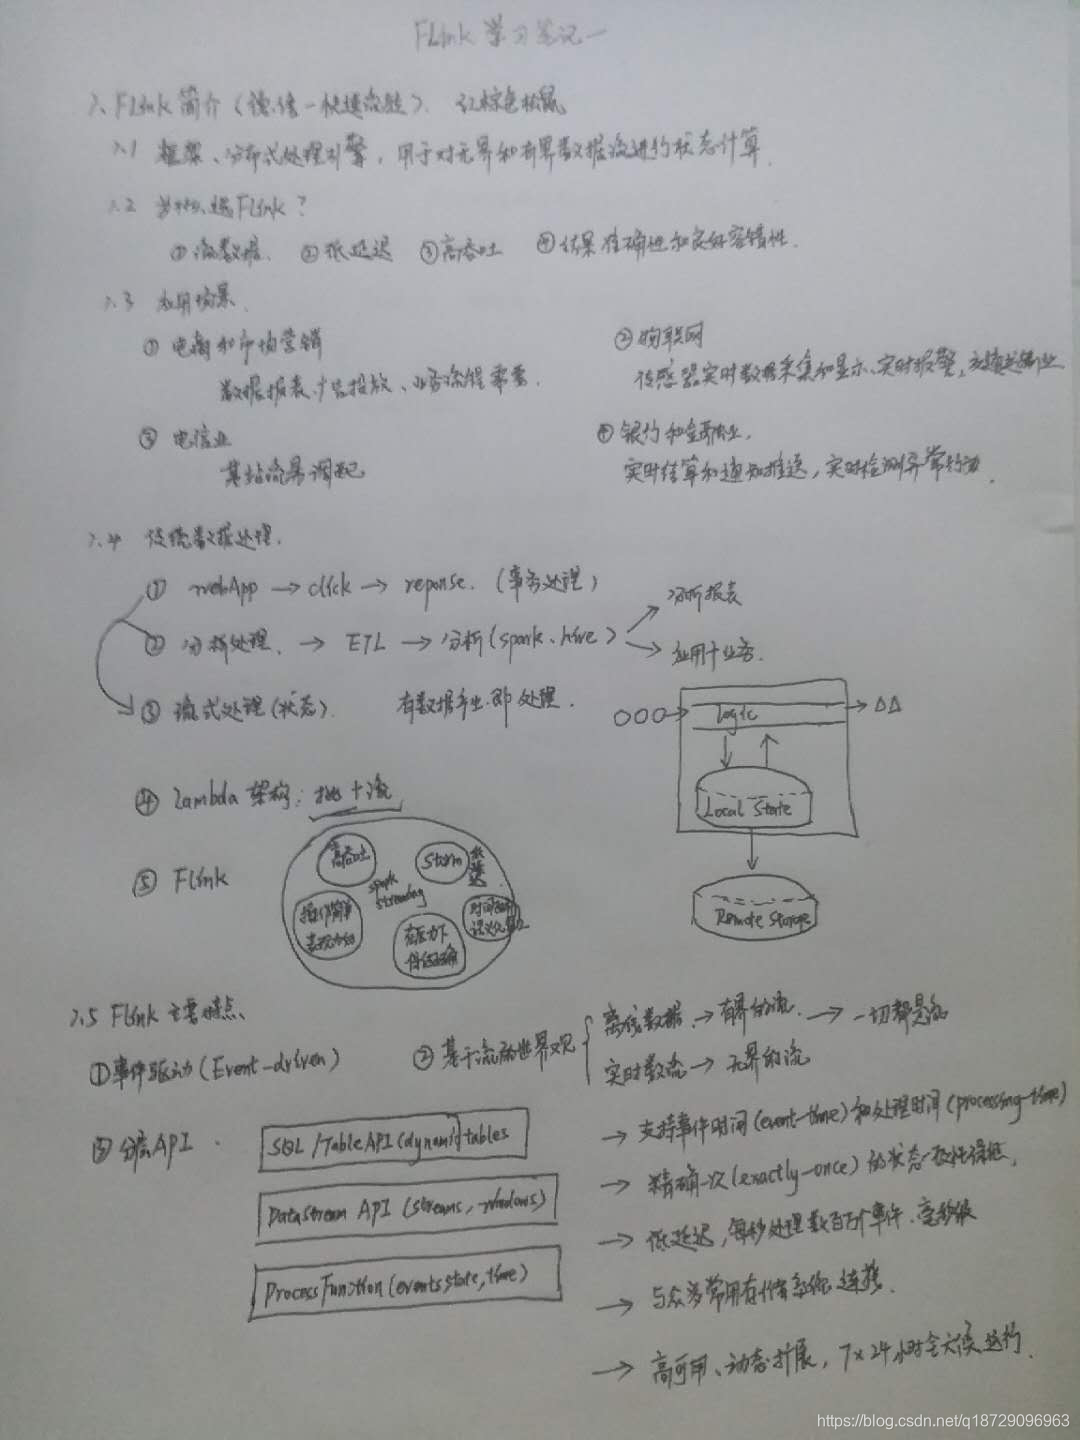 FLink 学习笔记一
1. FLink 简介（德语-快速灵敏）. 红棕色松鼠
1.1 框架、分布式处理引擎，用于对无界和有界数据流进行状态计算.
1.2 为什么选FLink？
① 流数据. ② 低延迟 ③ 高吞吐 ④ 结果准确性和良好容错性.
1.3 应用场景.
① 电商和市场营销
数据报表.广告投放、业务流程需要.
② 物联网
传感器实时数据采集和显示、实时报警，交通运输业
③ 电信业
基站流量调配
④ 银行和金融业.
实时结算和通知推送，实时检测异常行为.
1.4 传统数据处理.
① webApp → click → reponse. （事务处理）
② 分析处理. → ETL → 分析(spark、hive)
分析报表
应用于业务.
③ 流式处理(状态). 有数据产生.即处理.
OOO Logic ΔΔ
Local State
Remote Storage
④ Lambda 架构：批+流
⑤ FLink
高吞吐
Storm
低延迟
spark streaming
操作简单
表现力好
压力下
保持正确
时间正确
语义化窗口
1.5 FLink 主要特点、
① 事件驱动(Event-driven)
② 基于流的世界观
离线数据 → 有界的流. → 一切都是流
实时数据 → 无界的流
③ 分层API.
SQL /TableAPI(dynamic tables
DataStream API (streams, windows)
ProcessFunction(events state, time)
→ 支持事件时间(event-time)和处理时间(processing-time)
→ 精确一次(exactly-once)的状态一致性保证.
→ 低延迟，每秒处理数百万个事件.毫秒级
→ 与众多常用存储系统连接.
→ 高可用、动态扩展，7×24小时全天候运行.
https://blog.csdn.net/q18729096963